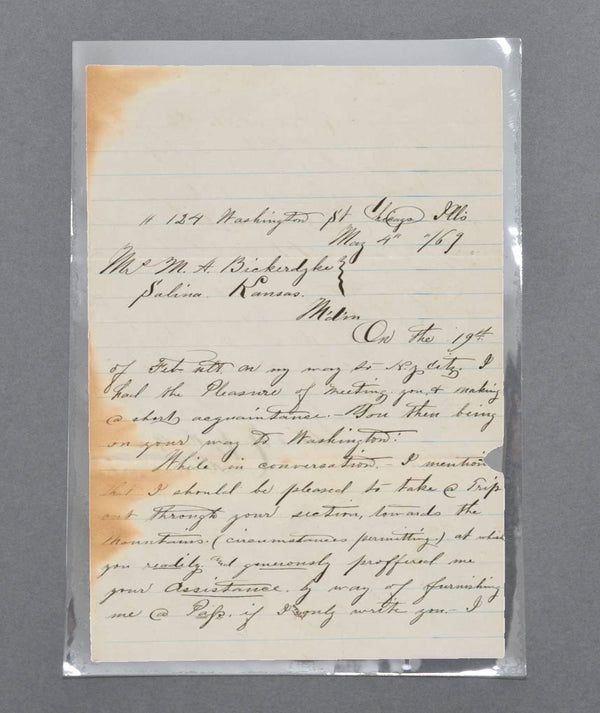 # 124 Washington St Chicago Ills
May 4th /69
Mrs M. A. Bickerdyke
Salina. Kansas.
Mdm
On the 19th
of Feb. ult. on my way to N.Y. City. I
had the Pleasure of meeting you & making
a short acquaintance. You then being
on your way to Washington:
While in conversation. - I mention
that I should be pleased to take a Trip
out through your section, towards the
Mountains. (circumstances permitting.) at which
you readily and generously proffered me
your assistance. by way of furnishing
me a Pass. if I only write you - I